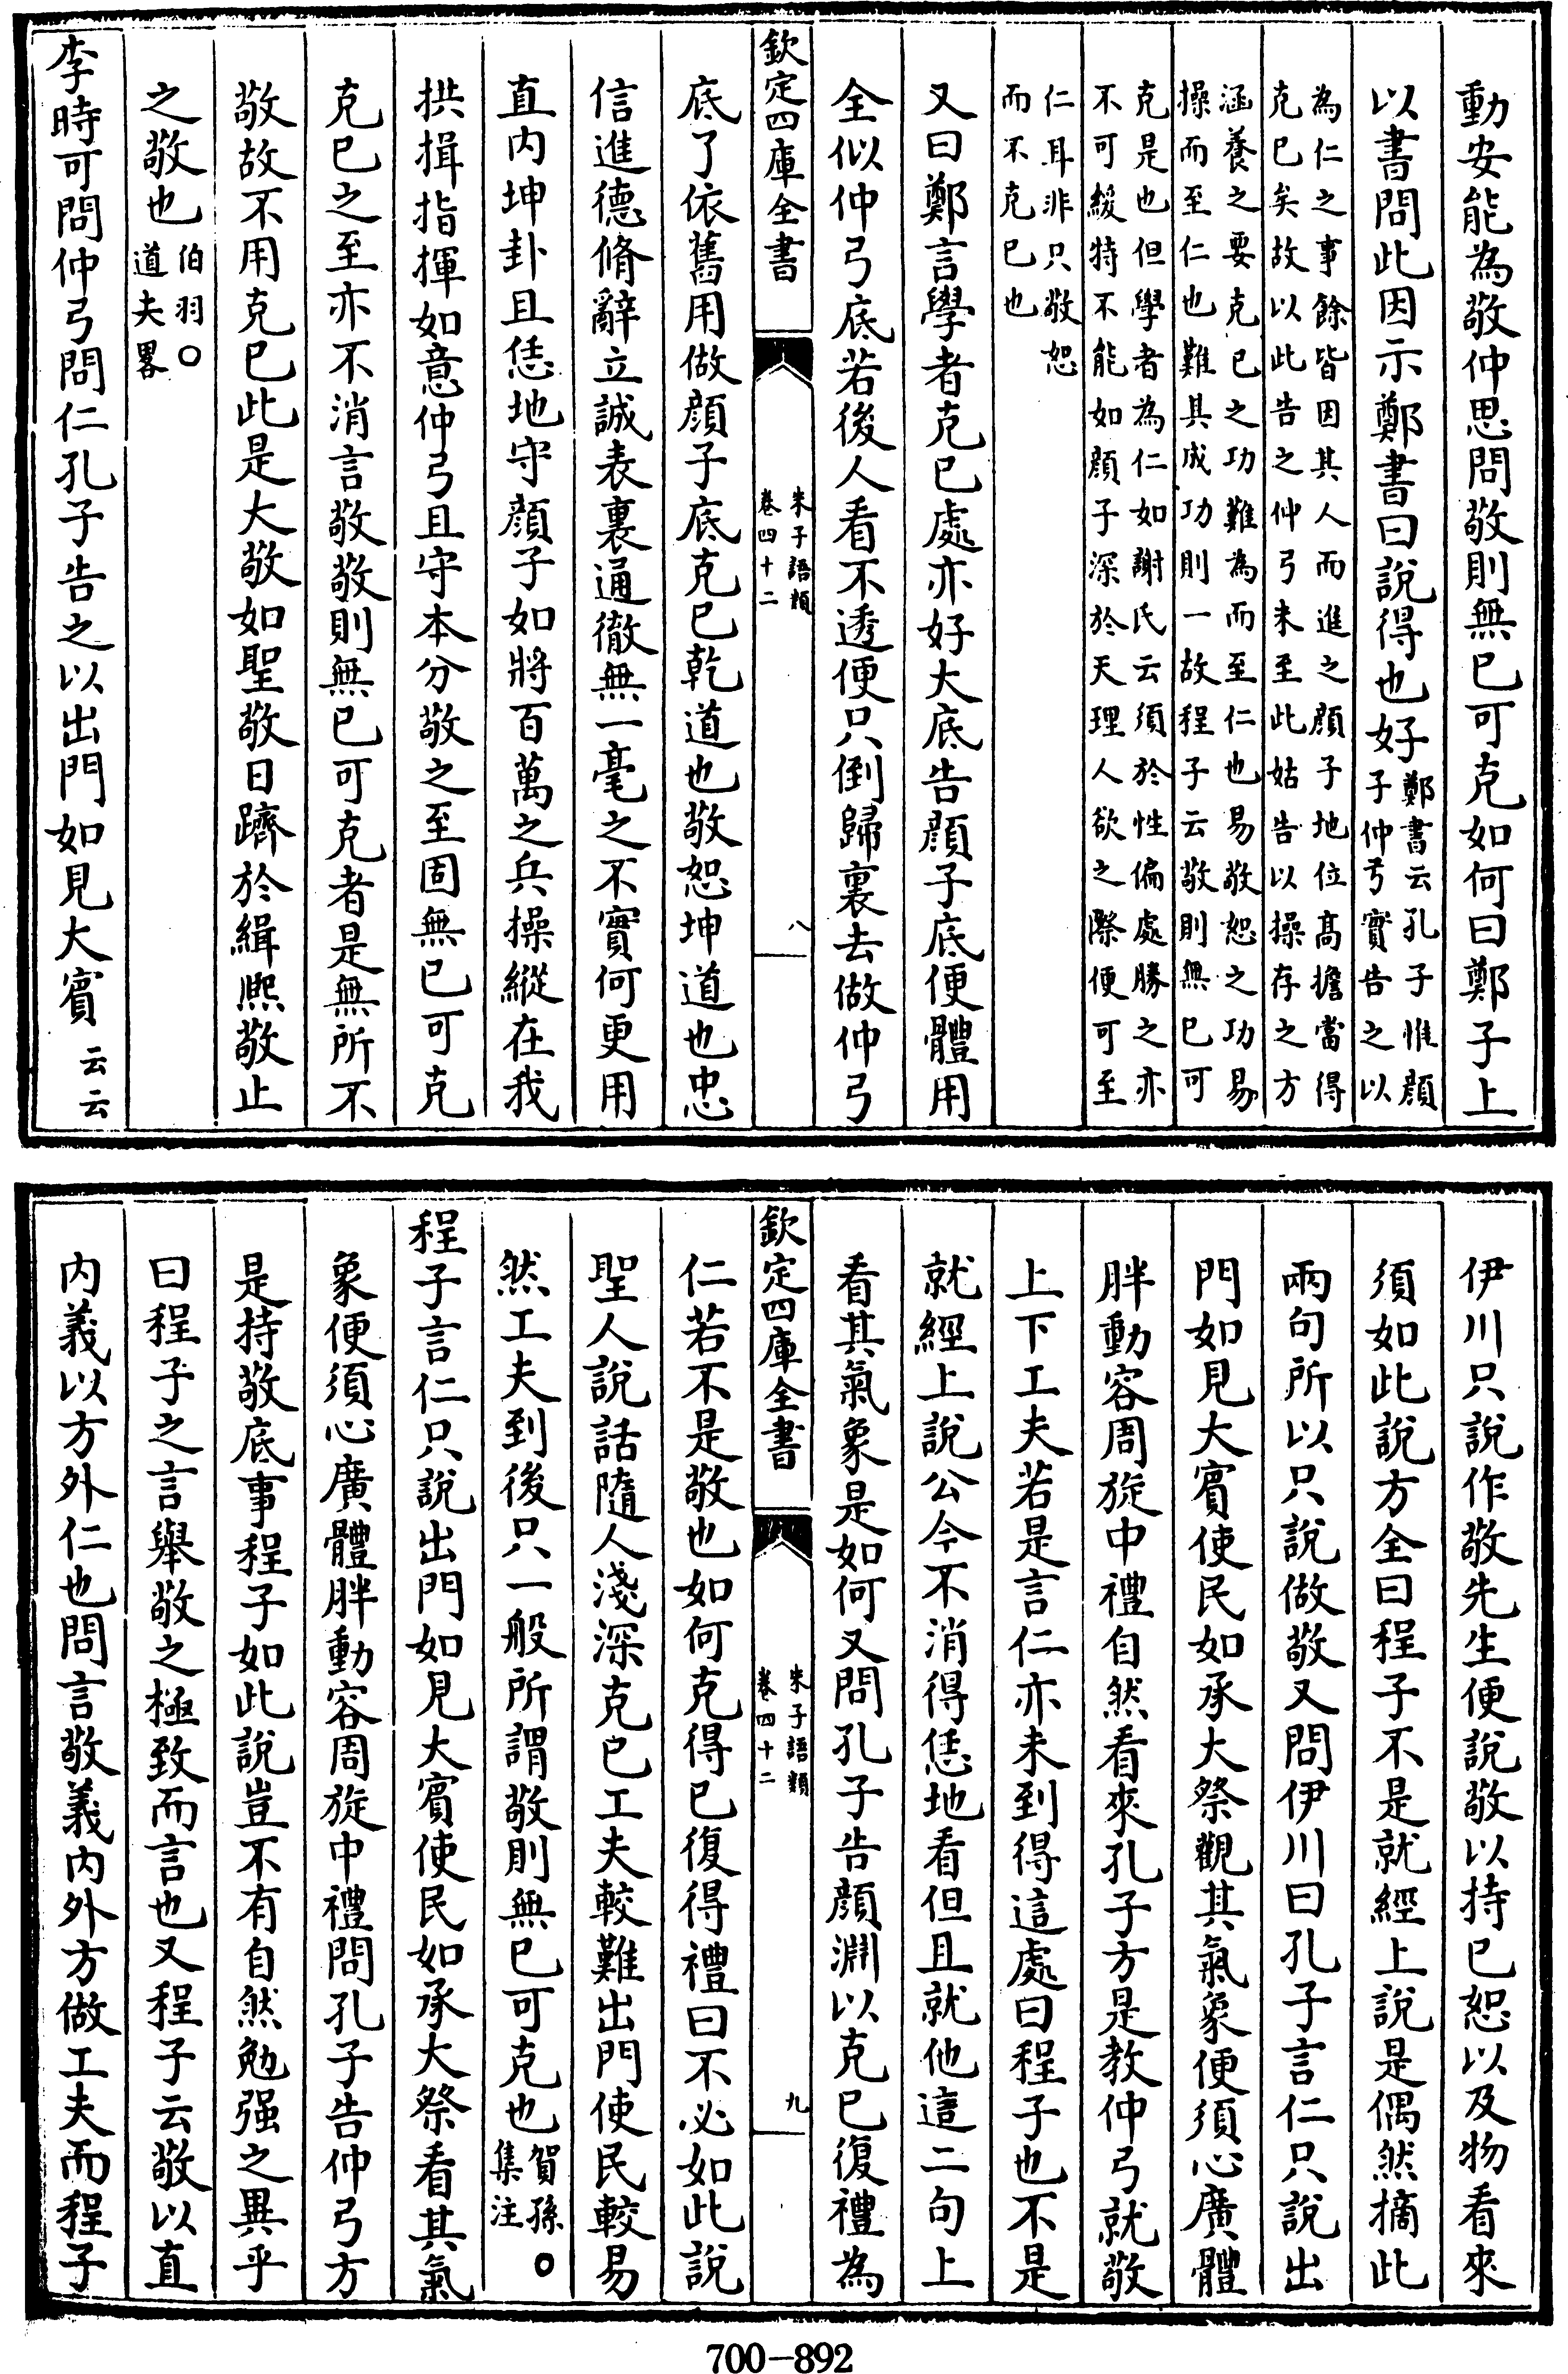 動安能為敬仲思問敬則無已可克如何曰鄭子上
以書問此因示鄭書曰說得也好鄭書云孔子惟顏
子仲弓實告之以
為仁之事餘皆因其人而進之顏子地位高擔當得
克已矣故以此告之仲弓未至此姑告以操存之方
涵養之要克已之功難為而至仁也易敬恕之功易
操而至仁也難其成功則一故程子云敬則無已可
克是也但學者為仁如謝氏云須於性偏處勝之亦
不可緩特不能如顏子深於天理人欲之際便可至
仁耳非只敬恕
而不克已也
又曰鄭言學者克已處亦好大底告顏子底便體用
全似仲弓底若後人看不透便只倒歸裏去做仲弓
欽定四庫全書
朱子語類
卷四十二
八
底了依舊用做顏子底克已乾道也敬恕坤道也忠
信進德脩辭立誠表裏通徹無一毫之不實何更用
直内坤卦且恁地守顏子如將百萬之兵操縱在我
拱揖指揮如意仲弓且守本分敬之至固無已可克
克已之至亦不消言敬敬則無已可克者是無所不
敬故不用克已此是大敬如聖敬日躋於緝熙敬止
之敬也伯羽○
道夫畧
李時可問仲弓問仁孔子告之以出門如見大賓云云
伊川只說作敬先生便說敬以持已恕以及物看來
須如此說方全曰程子不是就經上說是偶然摘此
兩句所以只說做敬又問伊川曰孔子言仁只說出
門如見大賓使民如承大祭觀其氣象便須心廣體
胖動容周旋中禮自然看來孔子方是教仲弓就敬
上下工夫若是言仁亦未到得這處曰程子也不是
就經上說公今不消得恁地看但且就他這二句上
看其氣象是如何又問孔子告顏淵以克已復禮為
欽定四庫全書
朱子語類
卷四十二
九
仁若不是敬也如何克得已復得禮曰不必如此說
聖人說話隨人淺深克已工夫較難出門使民較易
然工夫到後只一般所謂敬則無已可克也賀孫○
集注
程子言仁只說出門如見大賓使民如承大祭看其氣
象便須心廣體胖動容周旋中禮問孔子告仲弓方
是持敬底事程子如此說豈不有自然勉强之異乎
曰程子之言舉敬之極致而言也又程子云敬以直
内義以方外仁也問言敬義内外方做工夫而程子
700-892